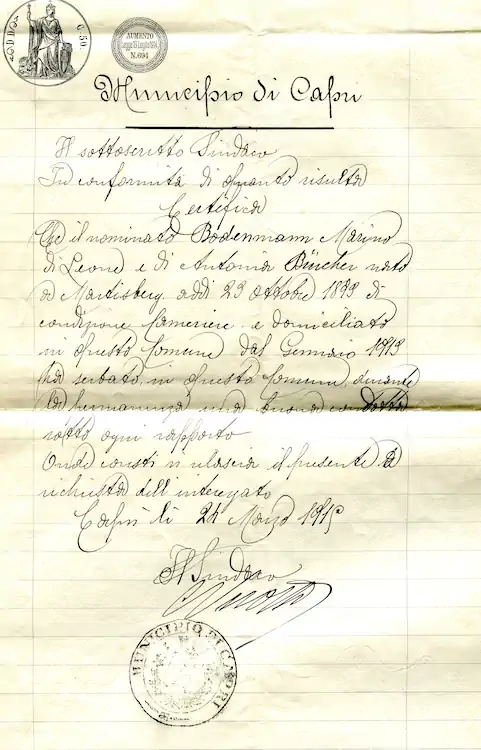 C. 50
AUMENTO
N. 694
Municipio di Capri
Il sottoscritto Sindaco
In conformità di quanto risulta
Certifica
Che il nominato Bodenmann Marino
di Leone e di Antonia Bürcher nato
a Martisberg addì 23 ottobre 1893 di
condizione cameriere e domiciliato
in questo Comune dal Gennaio 1913
ha serbato in questo Comune, durante
la permanenza una buona condotta
sotto ogni rapporto
Onde consti si rilascia il presente a
richiesta dell'interessato
Capri li 24 Marzo 1915
Il Sindaco
MUNICIPIO DI CAPRI